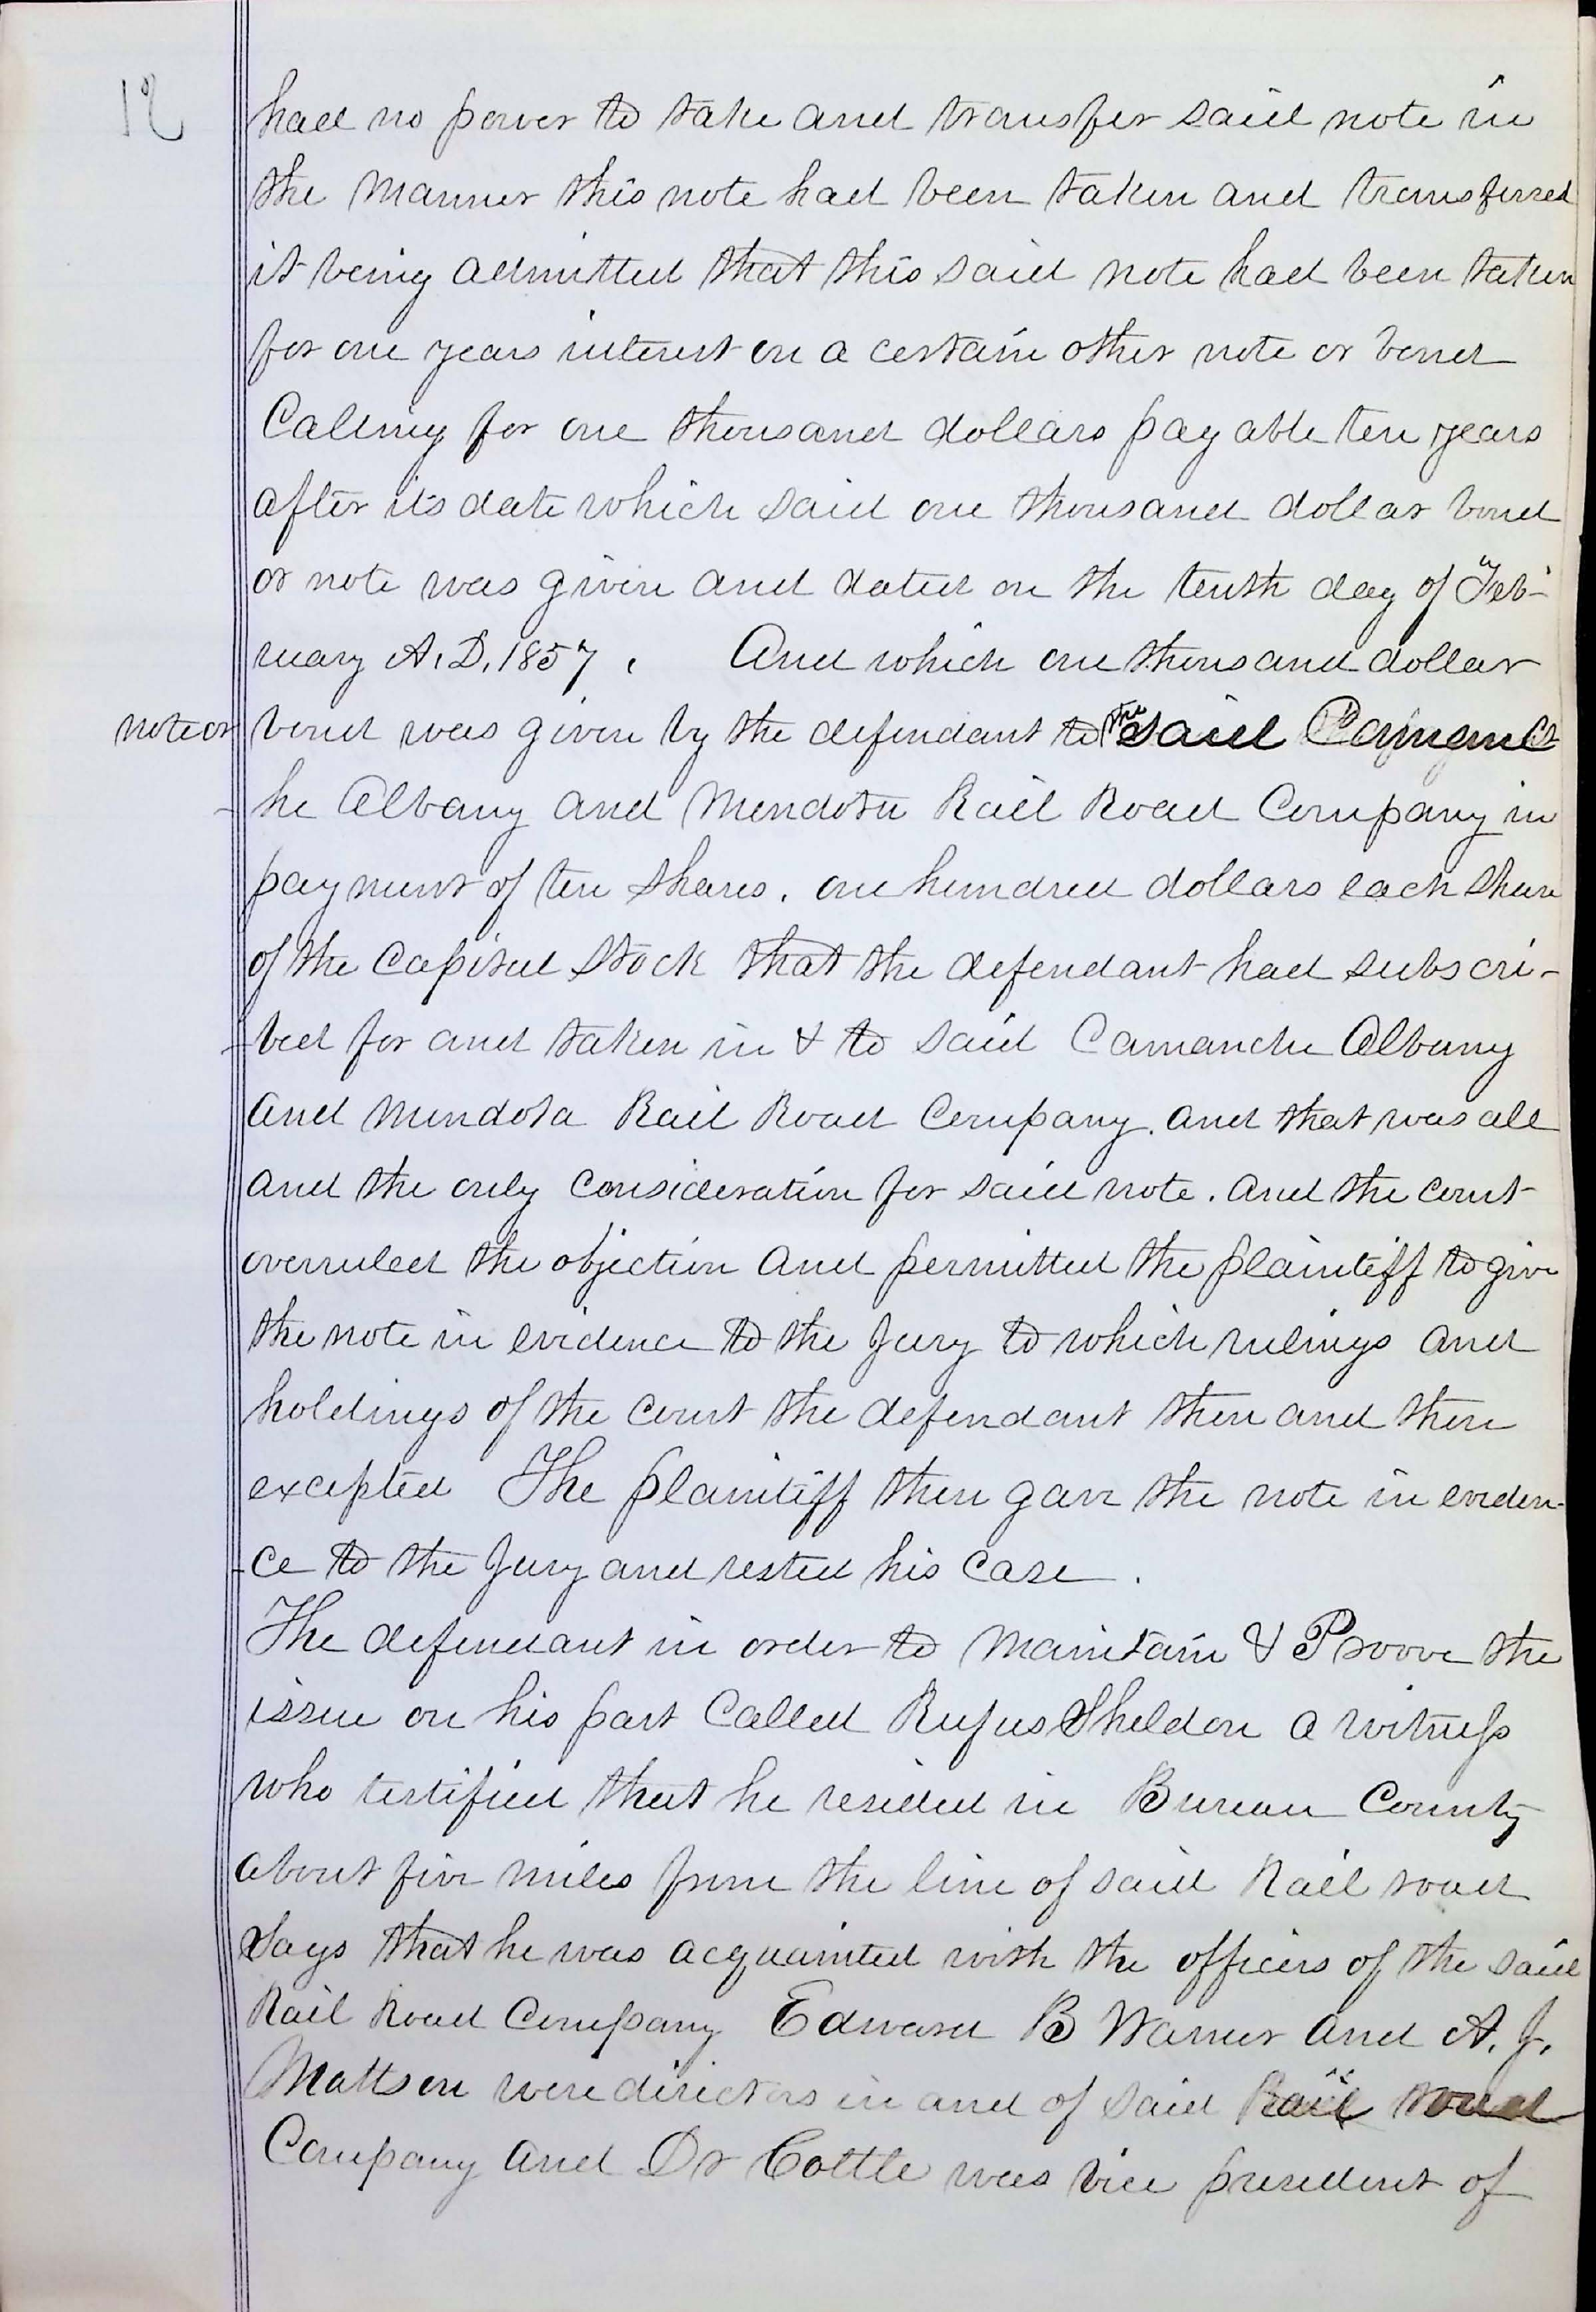 12
had no power to take and transfer said note in
the manner this note had been taken and transferred
it being admitted that this said note had been taken
for one years interest on a certain other note or bond
Calling for one thousand dollars payable ten years
after its date which said one thousand dollar bond
or note was given and dated on the tenth day of Feb-
ruary A.D. 1857. And which one thousand dollar
note or bond was given by the defendant to the said
-he Albany and Mendota Rail Road Company in
payment of ten shares. one hundred dollars each share
of the Capital Stock that the defendant had subscri-
-bed for and taken in & to said Camanche Albany
and Mendota Rail Road Company. and that was all
and the only consideration for said note. and the court
overruled the objection and permitted the plaintiff to give
the note in evidence to the Jury to which rulings and
holdings of the court the defendant then and there
excepted The plaintiff then gave the note in eviden-
-ce to the Jury and rested his case.
The defendant in order to maintain & Proove the
issue on his part Called Rufus Sheldon a witness
who testified that he resided in Bureau County
about five miles from the line of said Rail road
Says that he was acquainted with the officers of the said
Rail Road Company Edward B Warner and A. J.
Mattson were directors in and of said Rail road
Company and Dr Cottle was vice president of